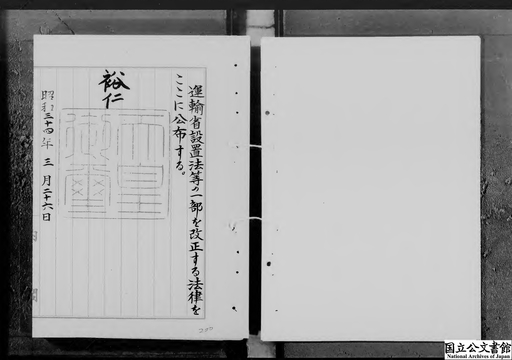 運輸省設置法等の一部を改正する法律を
ここに公布する。
裕仁
天皇
御璽
昭和三十四年三月二十六日
内閣
200
国立公文書館
National Archives of Japan